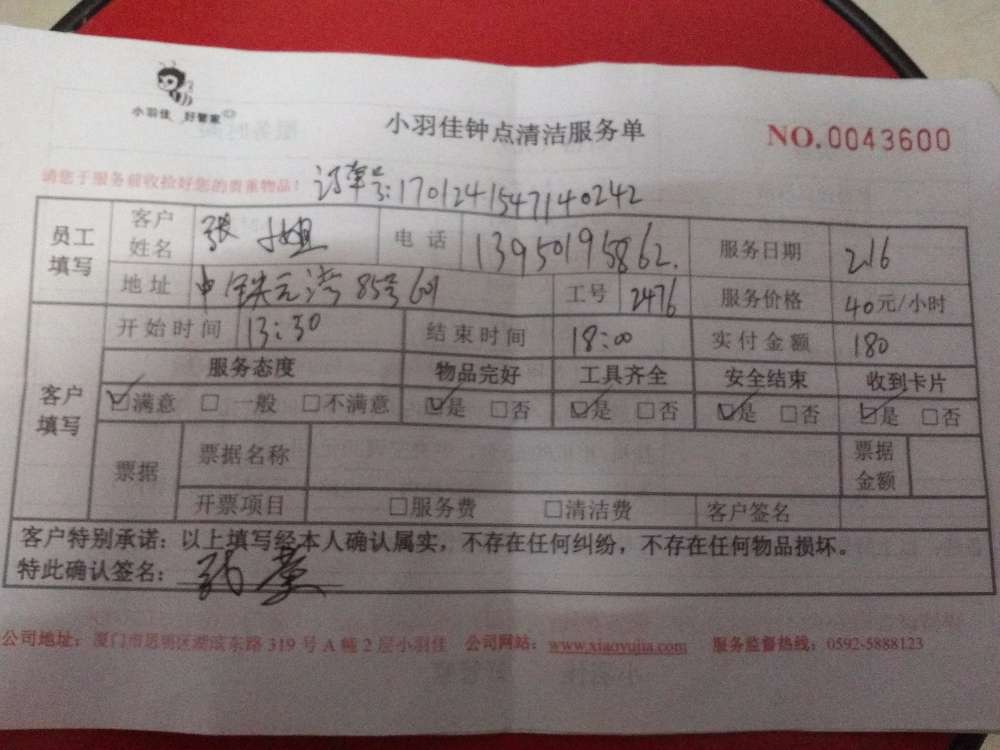 小羽佳 好管家
小羽佳钟点清洁服务单
NO.0043600
请您于服务前收拾好您的贵重物品!
订单号:170124154714 0242
员工填写 客户姓名 张小姐 电话 13950195862. 服务日期 2.16
地址 中铁元湾85号601 工号 2476 服务价格 40元/小时
客户填写 开始时间 13:30 结束时间 18:00 实付金额 180
服务态度 物品完好 工具齐全 安全结束 收到卡片
☑满意 □一般 □不满意 ☑是 □否 ☑是 □否 ☑是 □否 ☑是 □否
票据 票据名称 票据金额
开票项目 □服务费 □清洁费 客户签名
客户特别承诺:以上填写经本人确认属实,不存在任何纠纷,不存在任何物品损坏。
特此确认签名:
公司地址:厦门市思明区湖滨东路319号A幢2层小羽佳 公司网站:www.xiaoyujia.com 服务监督热线:0592-5888123